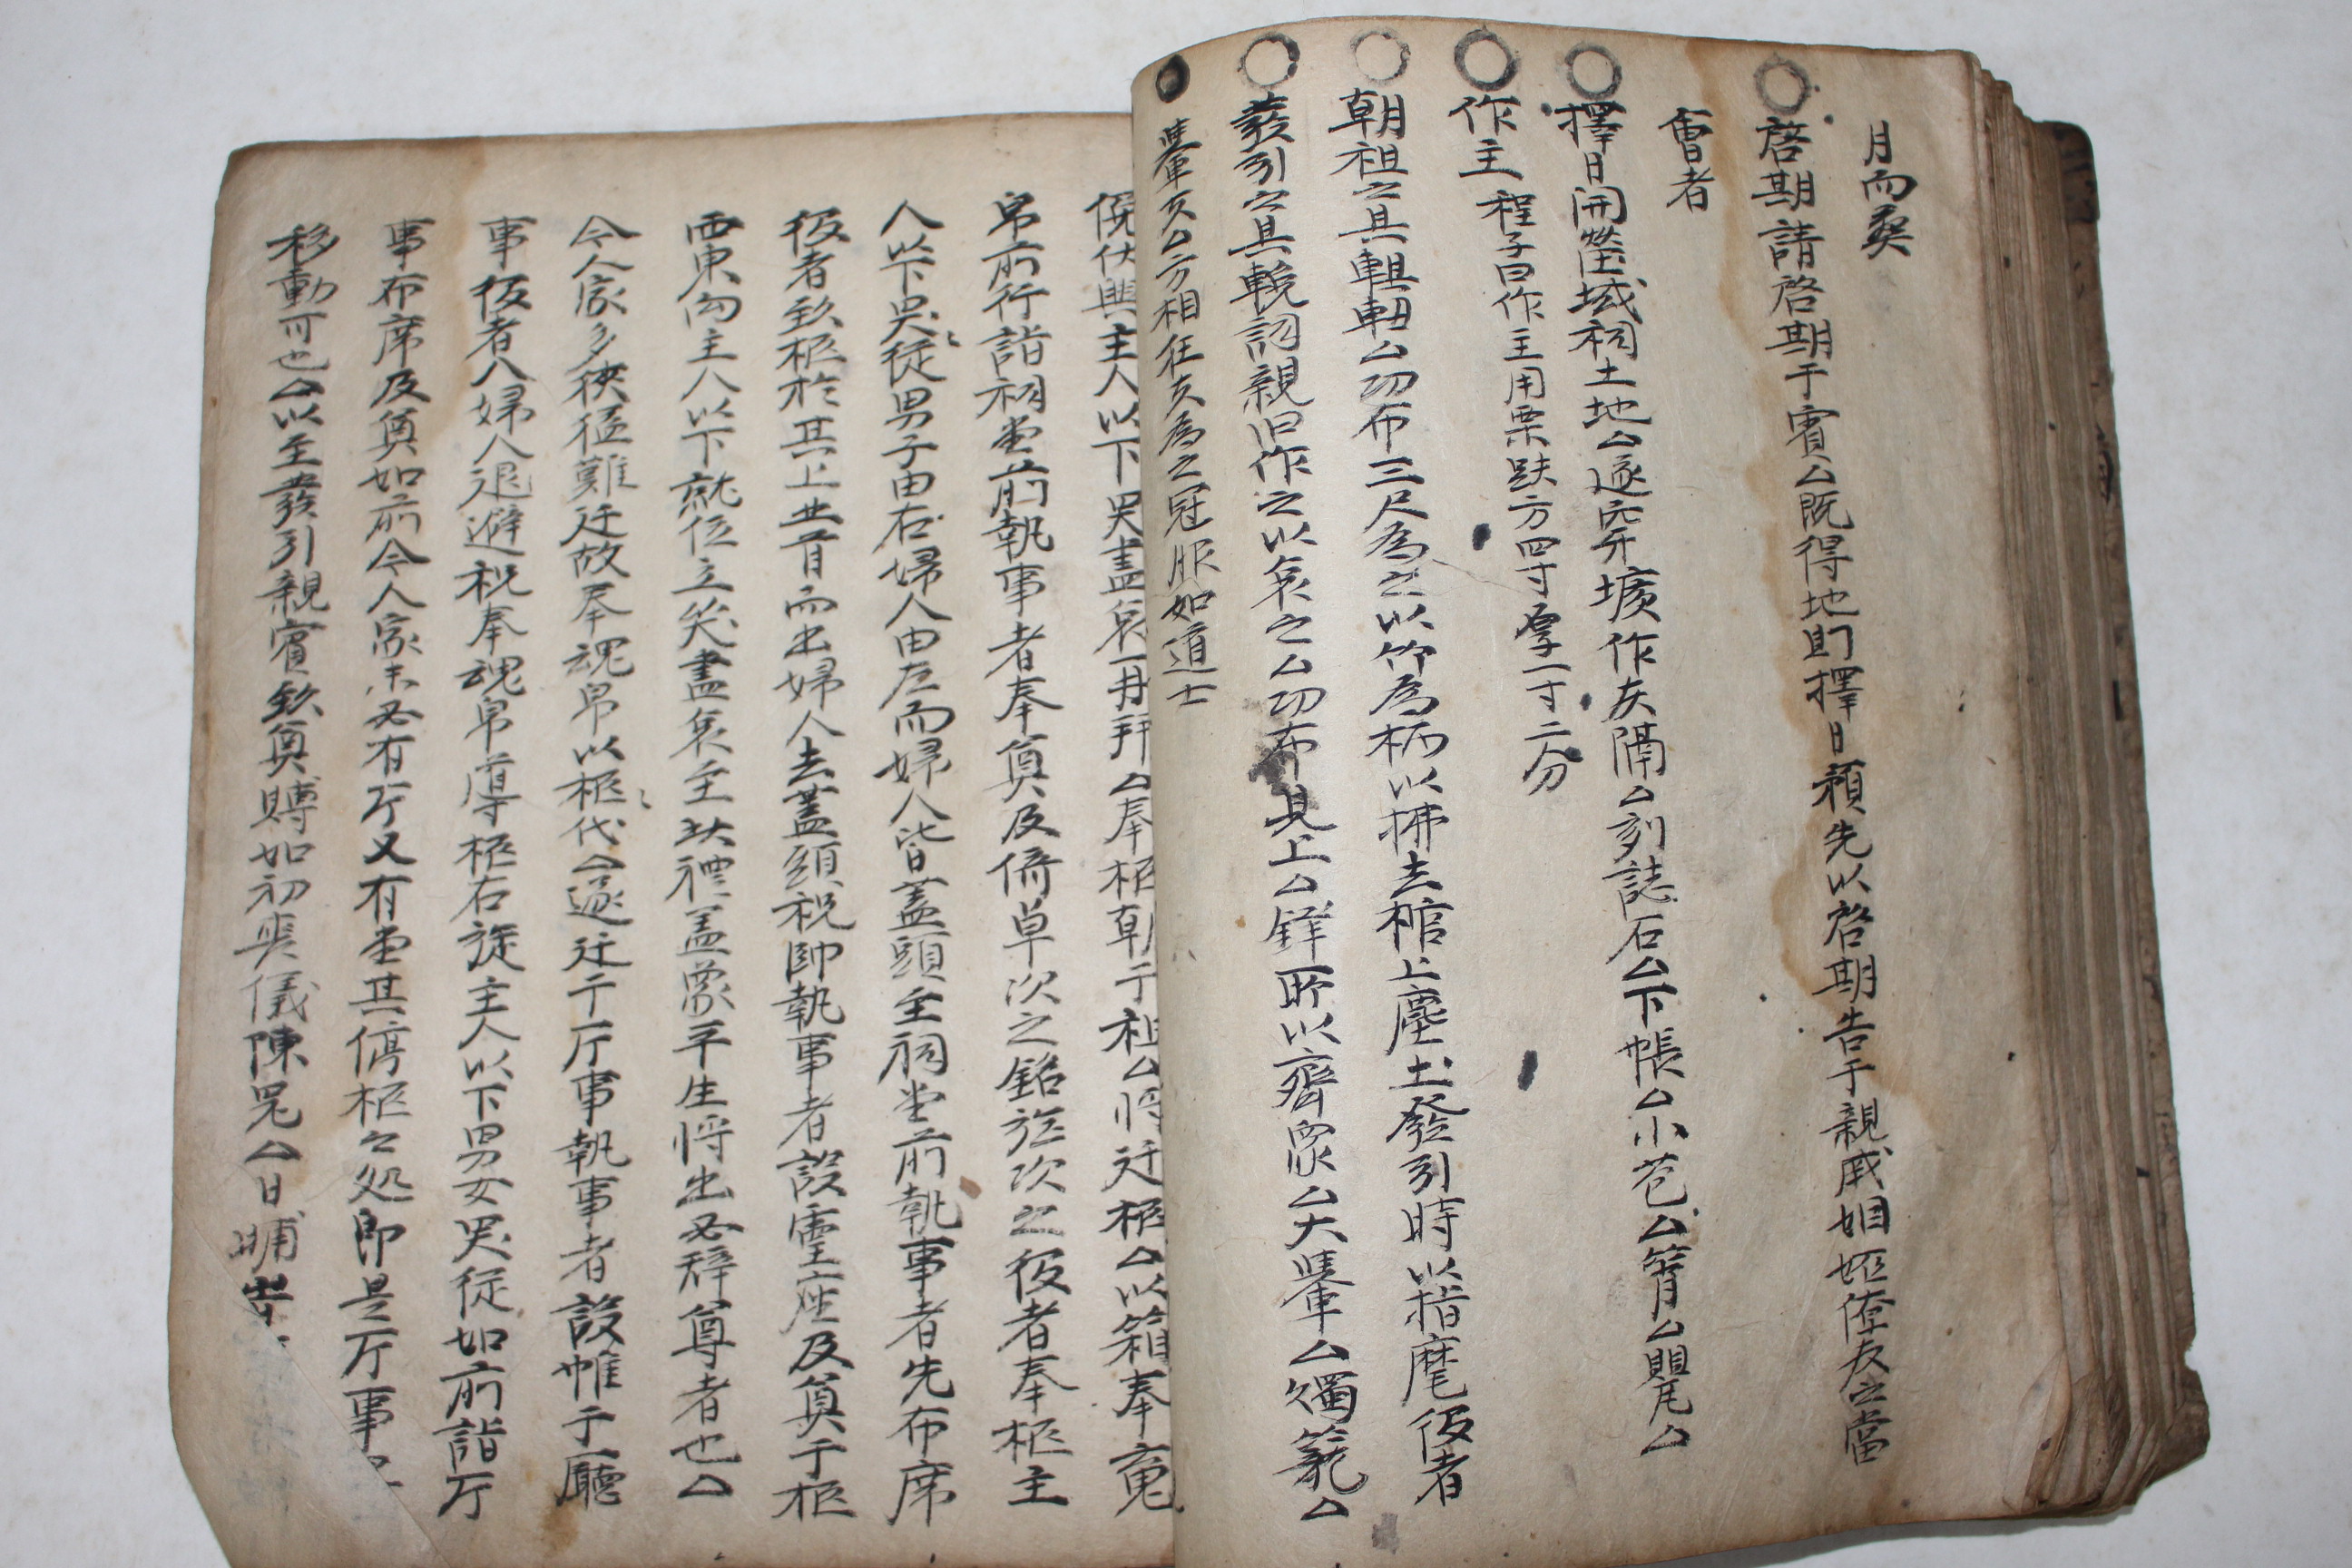 月而葬
啓期 請啓期于賓厶既得地則擇日預先以啓期告于親戚姻婭僚友之當
會者
擇日開塋域祠土地厶遂穿壙作灰隔厶刻誌石厶下帳厶小苞厶筲厶甖厶
作主 程子曰作主用栗趺方四寸厚一寸二分
朝祖之具輁軸厶功布三尺爲之以竹爲柄以拂去棺上塵土發引時以指麾役者
發引之具輓詞親旧作之以哀之厶功布見上厶鐸所以齊衆厶大轝厶燭籠厶
轝夫厶方相狂夫爲之冠服如道士
俛伏興主人以下哭盡哀再拜厶奉柩朝于祖厶将迁柩厶以箱奉䰟
帛前行詣祠堂前執事者奉奠及倚卓次之銘旌次之役者奉柩主
人以下哭從男子由右婦人由左而婦人皆盖頭至祠堂前執事者先布席
役者致柩於其上北首而出婦人去盖頭祝帥執事者設靈座及奠于柩
西東向主人以下就位立哭盡哀至此禮盖象平生将出必辞尊者也厶
今人家多狹隘難迁故奉魂帛以柩代厶遂迁于厅事執事者設帷于廳
事役者入婦人退避祝奉魂帛導柩右旋主人以下男女哭從如前詣厅
事布席及奠如前今人家未必有厅又有堂其停柩之処即是厅事
移動可也厶以至發引親賓致奠賻如初喪儀陳器厶日晡